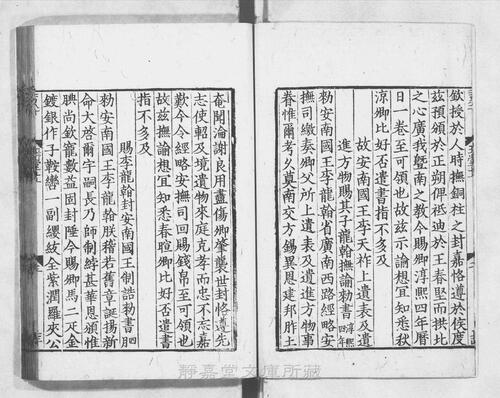 欽授於人時撫銅柱之封嘉恪遵於侯度
茲預頒於正朔俾祗迪於王春堅而拱北
之心廣我曁南之教今賜卿淳熙四年曆
日一卷至可領也故茲示諭想宜知悉秋
涼卿比好否遣書指不多及
故安南國王李天祚上遺表及遺
進方物賜其子龍翰撫諭勑書淳熙四年
勑安南國王李龍翰省廣南西路經略安
撫司繳奏卿父所上遺表及遺進方物事
眷惟爾考久奠南交方錫異恩建邦胙土
奄聞淪謝良用盡傷卿肇襲世封恪遵先
志使軺及境遺物來庭克孝而忠不忘嘉
歎今令經略安撫司回賜錢帛至可領也
故茲撫諭想宜知悉春暄卿比好否遣書
指不多及
賜李龍翰封安南國王制誥勑書四月
勑安南國王李龍翰朕稽若舊章誕揚新
命大啓爾宇嗣長乃師制綍甚華恩頒惟
腆尚欽寵數益固封陲今賜卿馬二疋金
鍍銀作子鞍轡一副纓紱全紫潤羅夾公
静嘉堂文庫所蔵